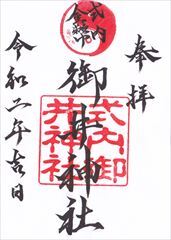 奉拝
式内
御井神社
式内御
井神社
令和二年吉日